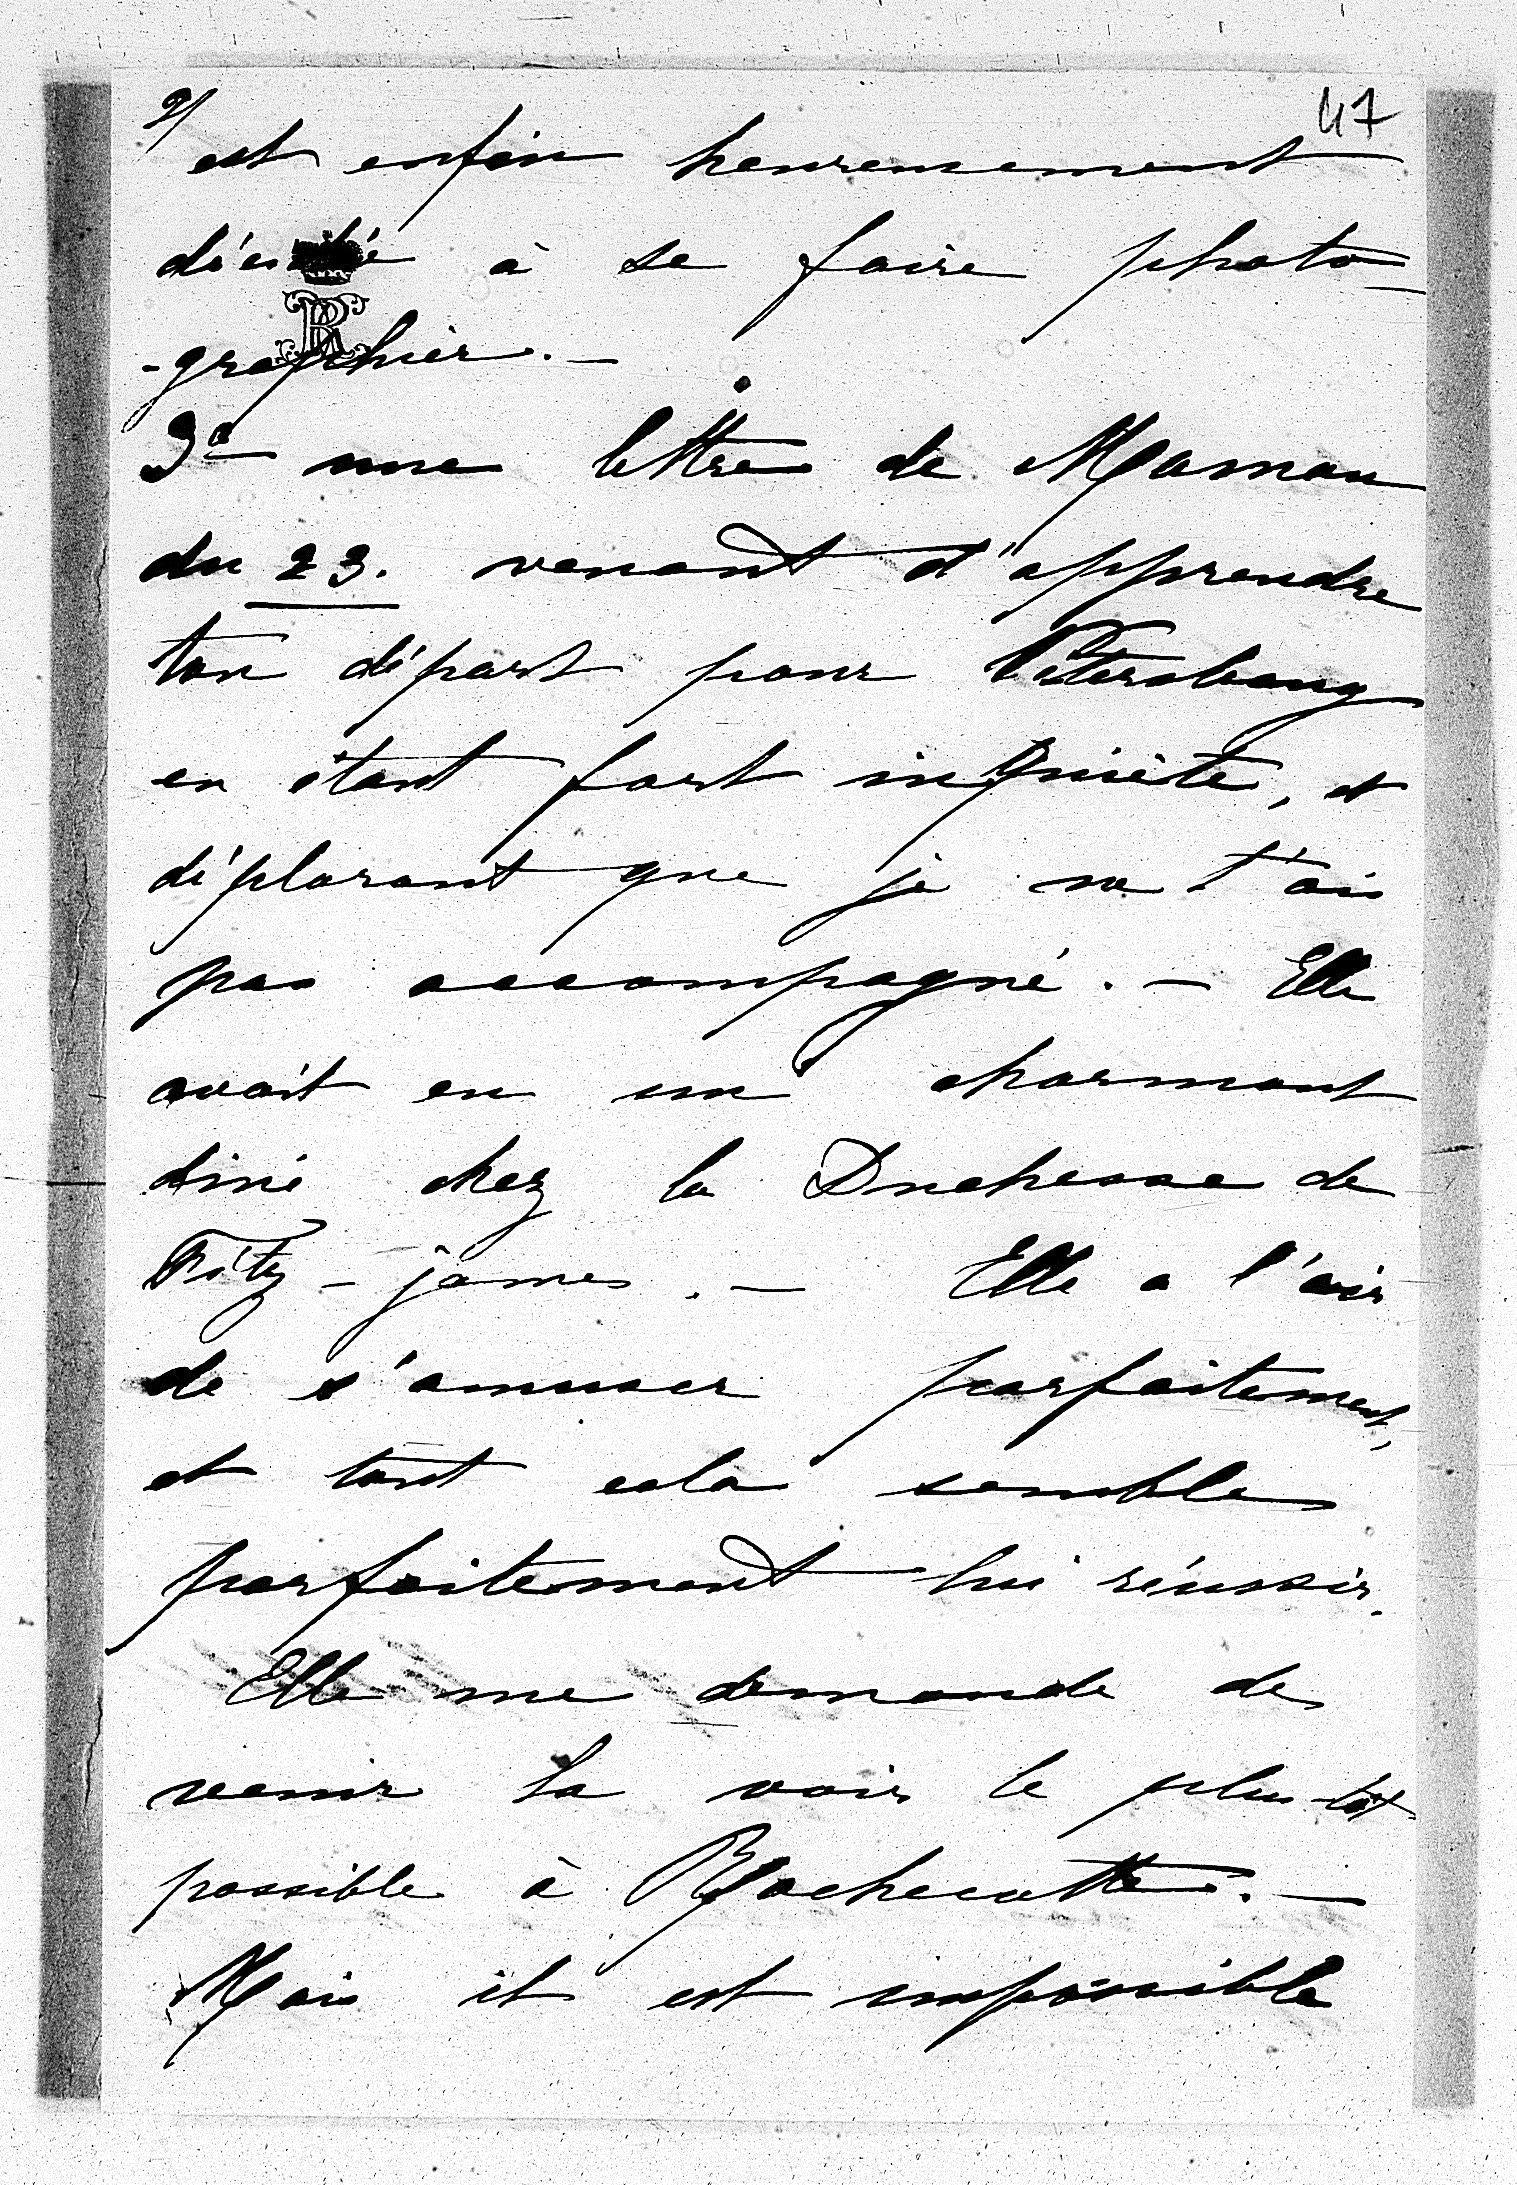 2/ 47
est enfin heureusement
décidé à se faire photo-
-graphier. —
3e une lettre de Maman
du 23. venant d'apprendre
ton départ pour Pétersbourg
en étant fort inquiète, et
déplorant que je ne t'aie
pas accompagné. — Elle
avait eu un charmant
diné chez la Duchesse de
Fitz-james. — Elle a l'air
de s'amuser parfaitement,
et tout cela semble
parfaitement lui réussir.
Elle me demande de
venir la voir le plus tôt
possible à Rochecotte. —
Mais il est impossible